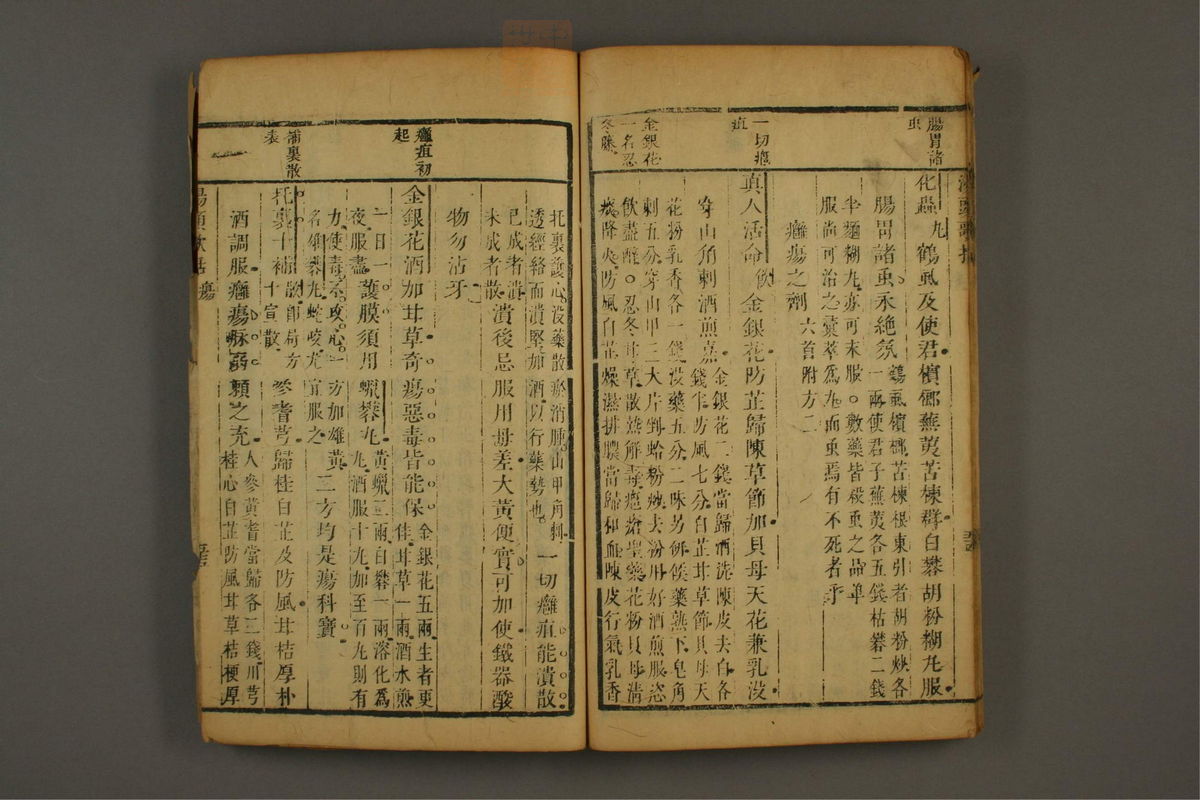 腸胃諸
虫
化蟲丸鶴虱及使君檳榔蕪荑苦楝群白礬胡粉糊丸服
腸胃諸虫永絕氛 鶴虱檳榔苦楝根東引者胡粉炒各
一兩使君子蕪荑各五錢枯礬二錢
半麵糊丸亦可末服○數藥皆殺虫之品單
服尚可治之彙萃為丸而虫焉有不死者乎
癰瘍之劑 六首附方二
一切癰
疽
真人活命飲金銀花防芷歸陳草節加貝母天花兼乳沒
穿山角刺酒煎嘉 金銀花二錢當歸酒洗陳皮去白各
錢半防風七分白芷甘草節貝母天
金銀花
一名忍
冬藤
花粉乳香各一錢沒藥五分二味另研候藥熟下皂角
刺五分穿山甲三大片剉蛤粉炒去粉用好酒煎服恣
飲盡醉○忍冬甘草散熱解毒癰瘡聖藥花粉貝母清
痰降火防風白芷燥濕排膿當歸和血陳皮行氣乳香
托裏護心沒藥散瘀消腫山甲角刺
透經絡而潰堅加酒以行藥勢也
一切癰疽能潰散
已成者潰
未成者散
潰後忌服用毋差大黃便實可加使鐵器酸
物勿沾牙
癰疽初
起
金銀花酒加甘草奇瘍惡毒皆能保 金銀花五兩生者更
佳甘草一兩酒水煎
一日一
夜服盡
護膜須用蠟礬丸 黃蠟三兩白礬一兩溶化為
丸酒服十丸加至百丸則有
力使毒不攻心一
名雄礬丸蛇咬尤
方加雄黃
宜服之
二方均是瘍科寶
補裏散
表
托裏十補散即局方
十宣散
參耆芎歸桂白芷及防風甘桔厚朴
酒調服癰瘍脈弱賴之充 人參黃耆當歸各二錢川芎
桂心白芷防風甘草桔梗厚
湯頭歌括 瘍